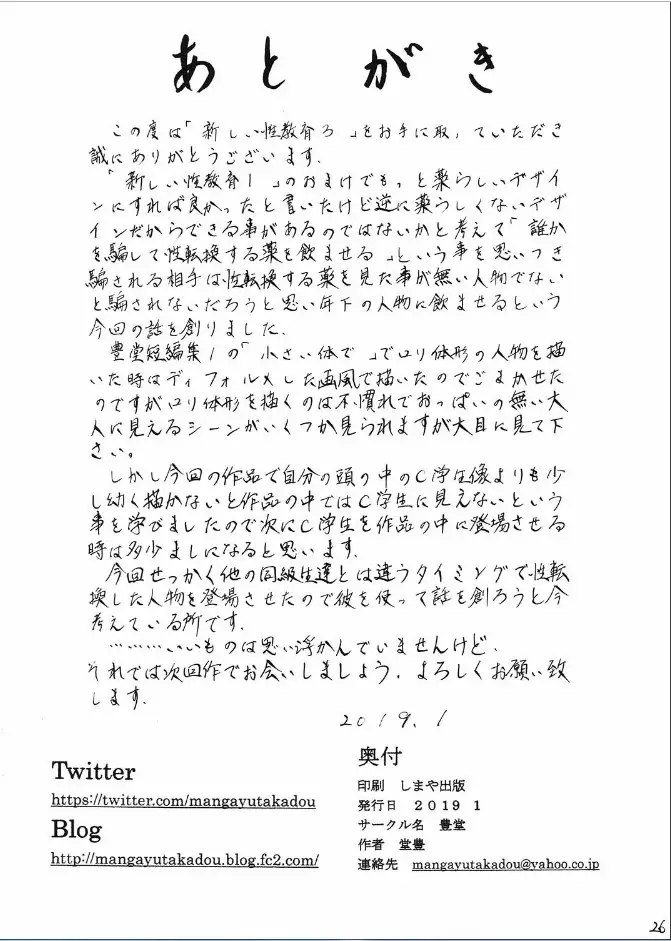 あとがき
この度は「新しい性教育3」をお手に取っていただき
誠にありがとうございます.
「新しい性教育1」のおまけでもっと薬らしいデザイ
ンにすれば良かったと書いたけど逆に薬らしくないデザ
インだからできる事があるのではないかと考えて「誰か
を騙して性転換する薬を飲ませる」という事を思いつき
騙される相手は性転換する薬を見た事が無い人物でない
と騙されないだろうと思い年下の人物に飲ませるという
今回の話を創りました.
豊堂短編集1の「小さい体で」でロリ体形の人物を描
いた時はディフォルメした画風で描いたのでごまかせた
のですがロリ体形を描くのは不慣れでおっぱいの無い大
人に見えるシーンがいくつか見られますが大目に見て下
さい。
しかし今回の作品で自分の頭の中のC学生像よりも少
し幼く描かないと作品の中ではC学生に見えないという
事を学びましたので次にC学生を作品の中に登場させる
時は多少ましになると思います.
今回せっかく他の同級生達とは違うタイミングで性転
換した人物を登場させたので彼を使って話を創ろうと今
考えている所です.
………いいものは思い浮かんでいませんけど.
それでは次回作でお会いしましょう.よろしくお願い致
します.
2019.1
Twitter
https://twitter.com/mangayutakadou
Blog
http://mangayutakadou.blog.fc2.com/
奥付
印刷　しまや出版
発行日　2019 1
サークル名　豊堂
作者　堂豊
連絡先　mangayutakadou@yahoo.co.jp
26